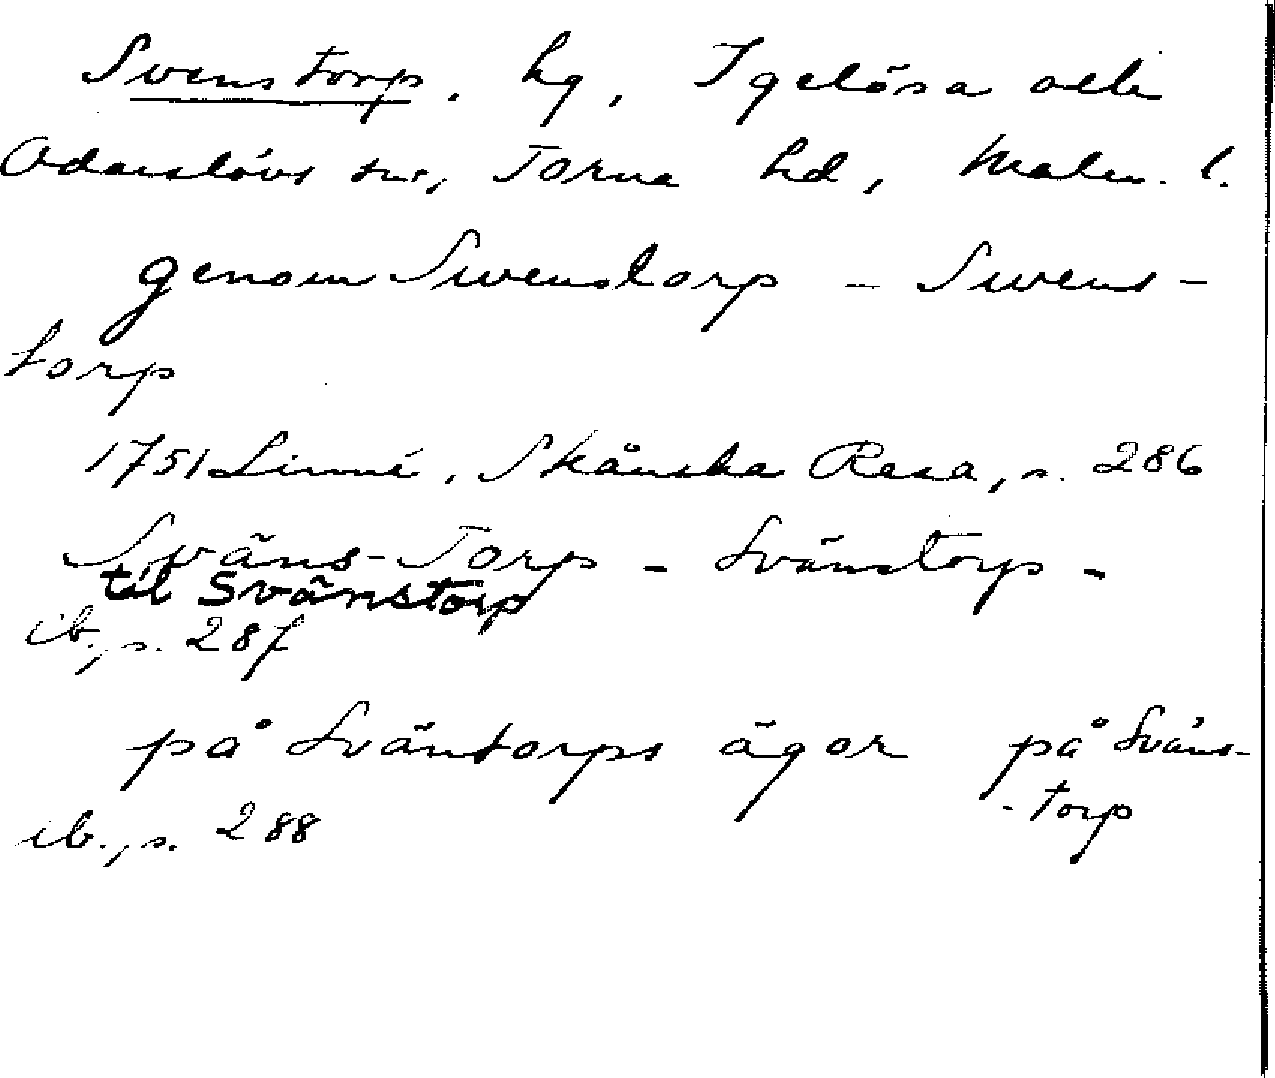 Svenstorp, hg, Igelösa och
Odarslövs snr, Torna hd, Malm. l.
genom Swenstorp – Swens-
torp
1751 Linné, Skånska Resa, s. 286
Swäns-Torp – Svänstorp –
til Svänstorp
ib., s. 287
på Sväntorps ägor på Sväns-
-torp
ib., s. 288